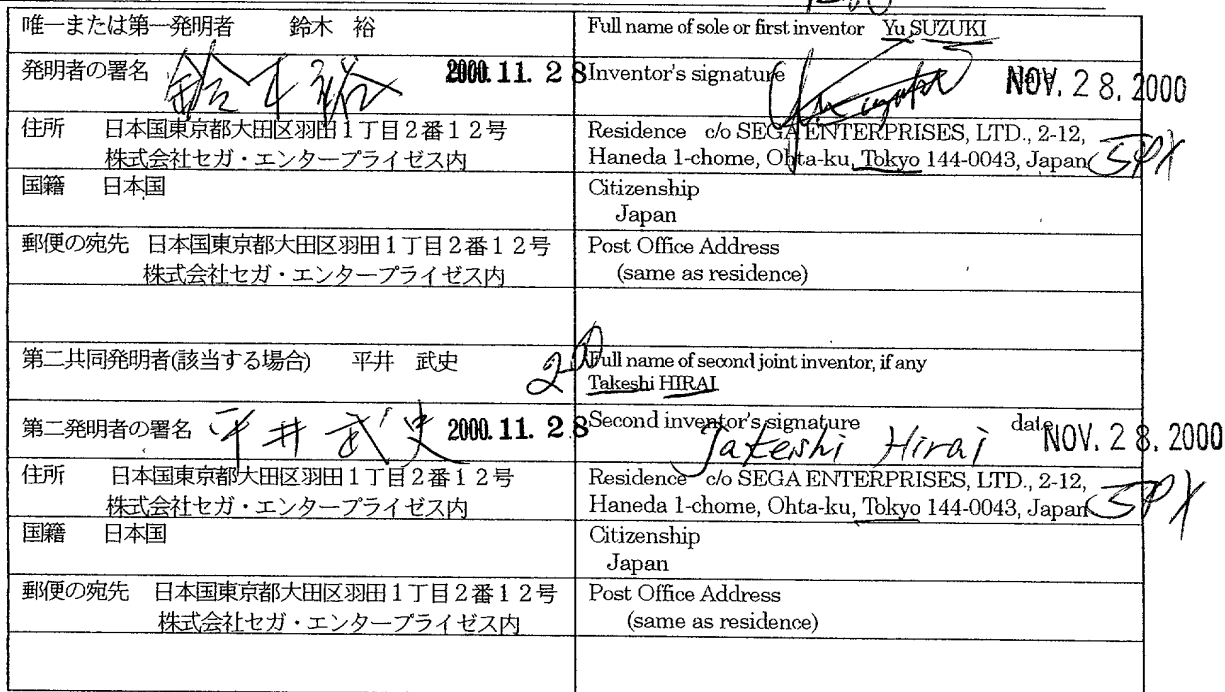 唯一または第一発明者 鈴木 裕
Full name of sole or first inventor Yu SUZUKI
発明者の署名 鈴木裕 2000.11.28
Inventor's signature NOV. 28. 2000
住所 日本国東京都大田区羽田1丁目2番12号
株式会社セガ・エンタープライゼス内
Residence c/o SEGA ENTERPRISES, LTD., 2-12,
Haneda 1-chome, Ohta-ku, Tokyo 144-0043, Japan JPX
国籍 日本国
Citizenship
Japan
郵便の宛先 日本国東京都大田区羽田1丁目2番12号
株式会社セガ・エンタープライゼス内
Post Office Address
(same as residence)
第二共同発明者(該当する場合) 平井 武史
Full name of second joint inventor, if any
Takeshi HIRAI
第二発明者の署名 平井武史 2000.11.28
Second inventor's signature Takeshi Hirai date NOV. 28. 2000
住所 日本国東京都大田区羽田1丁目2番12号
株式会社セガ・エンタープライゼス内
Residence c/o SEGA ENTERPRISES, LTD., 2-12,
Haneda 1-chome, Ohta-ku, Tokyo 144-0043, Japan JPX
国籍 日本国
Citizenship
Japan
郵便の宛先 日本国東京都大田区羽田1丁目2番12号
株式会社セガ・エンタープライゼス内
Post Office Address
(same as residence)